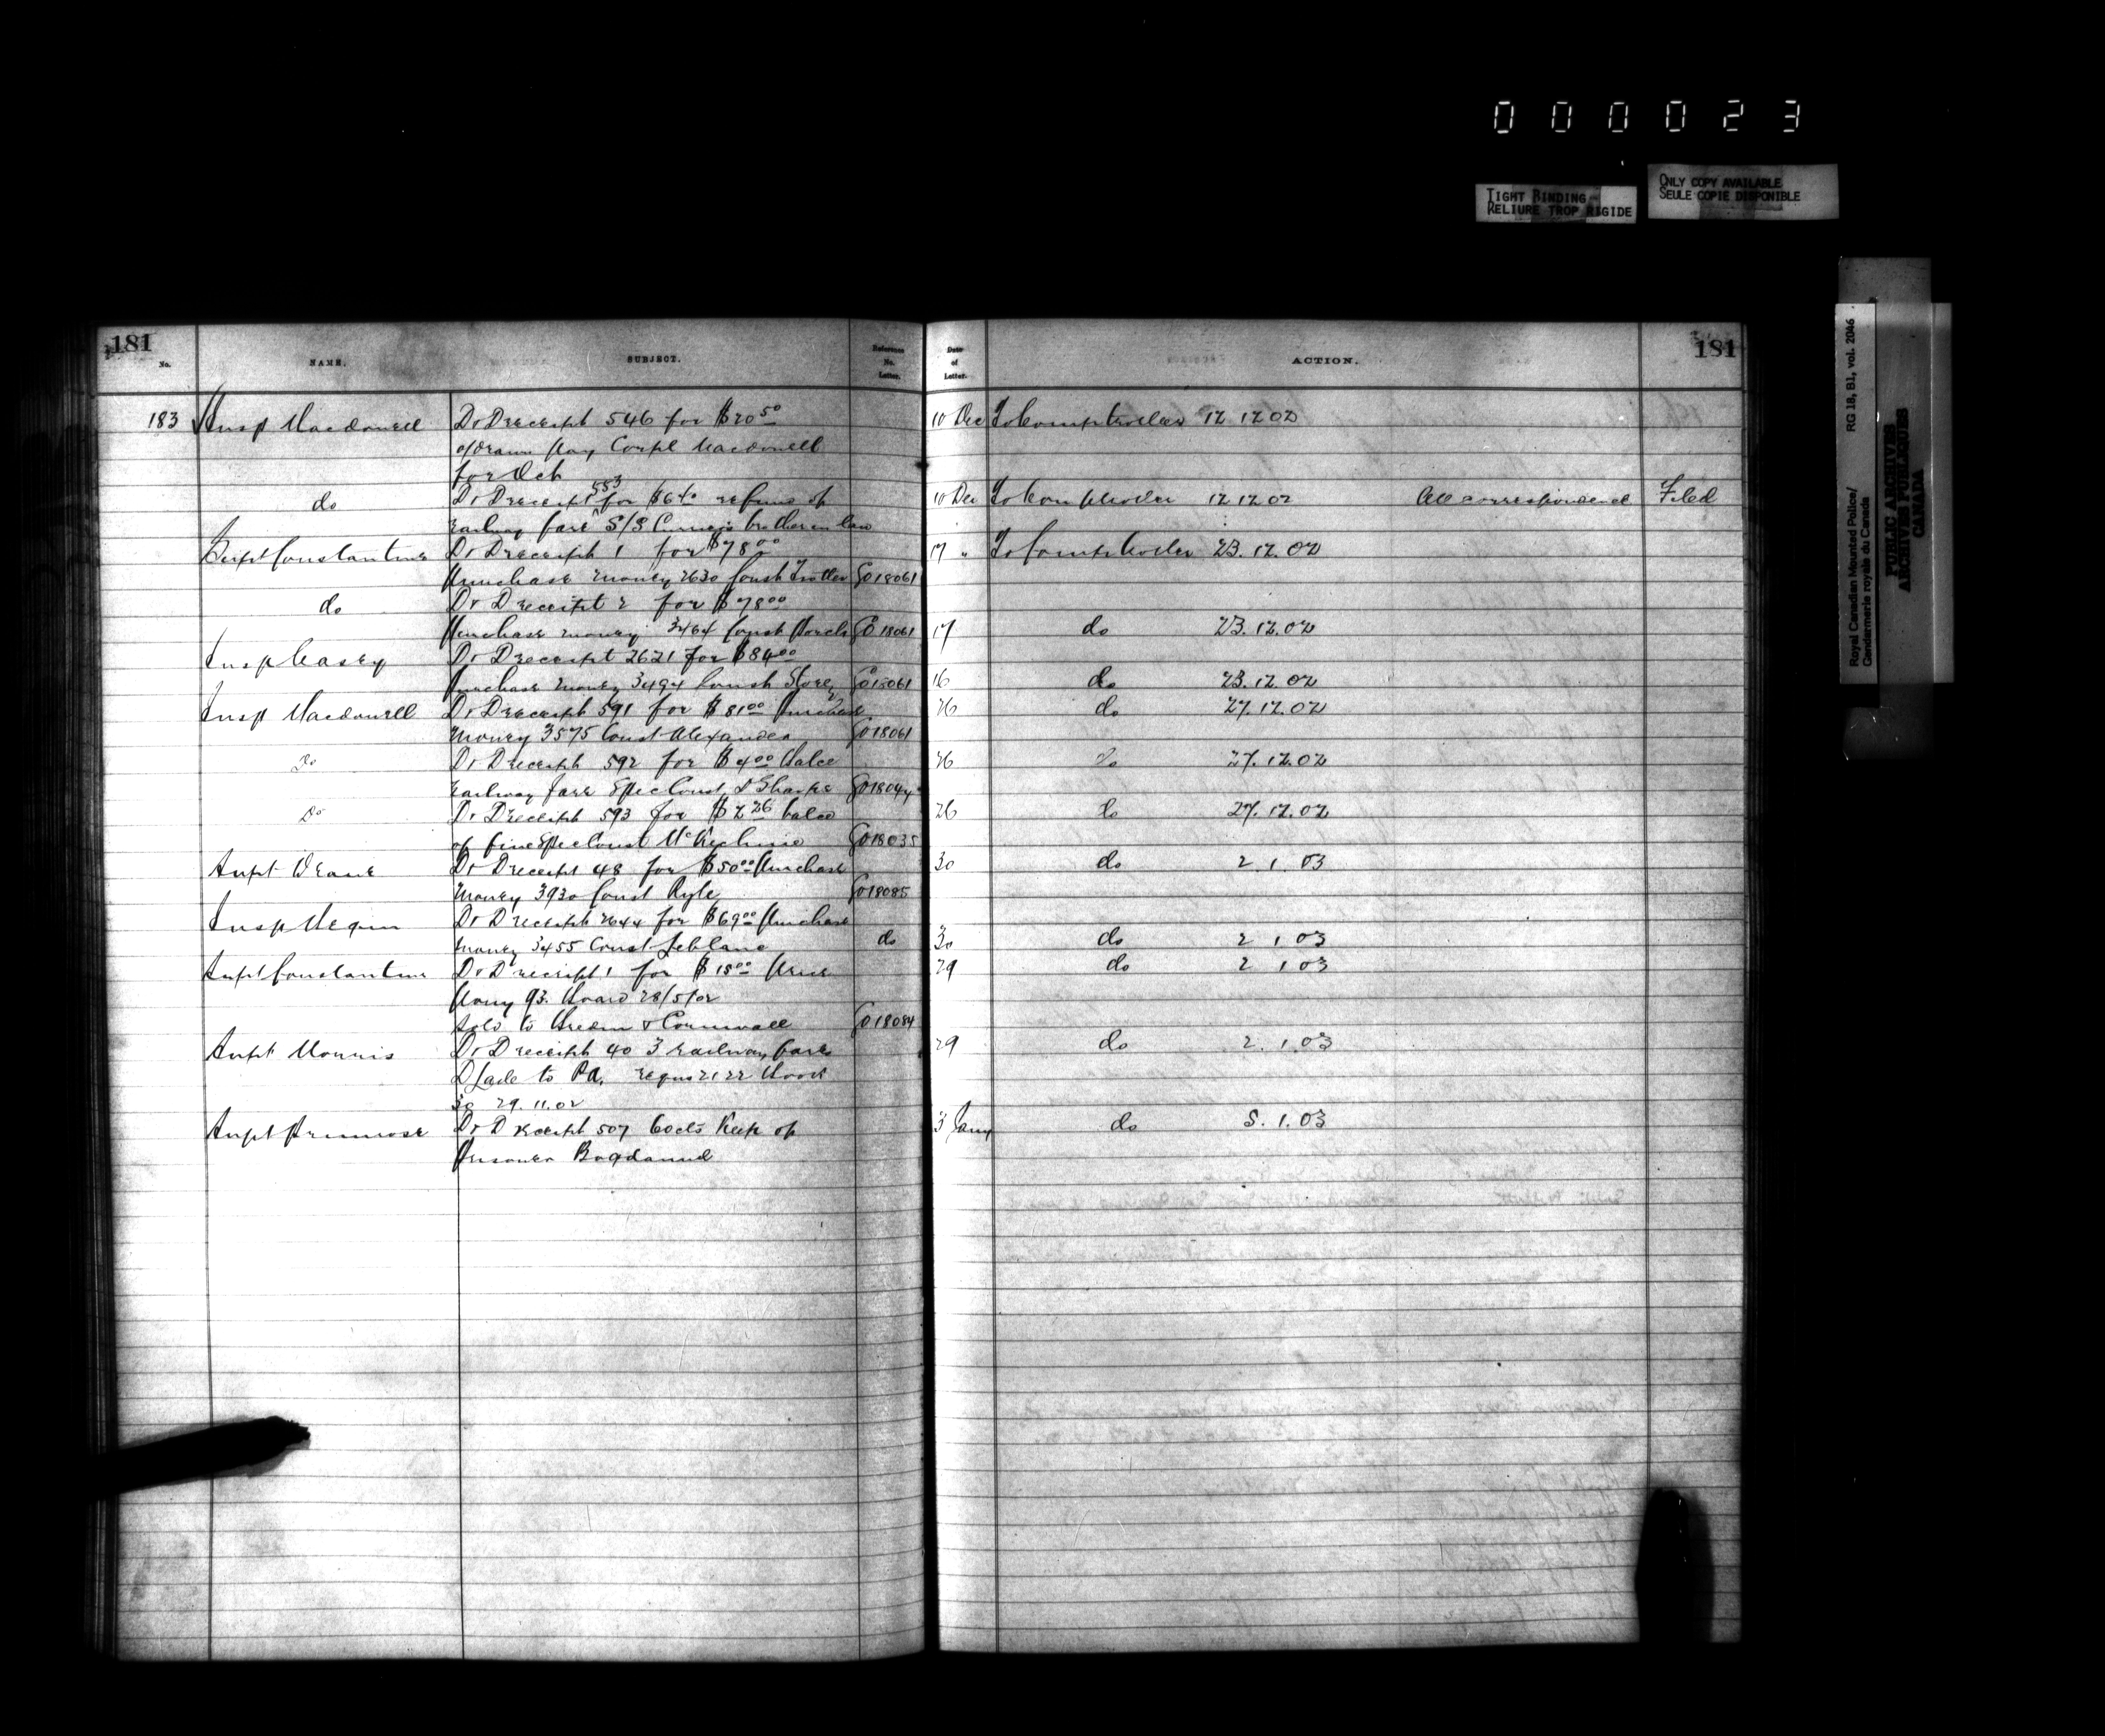 000023
TIGHT BINDING
RELIURE TROP RIGIDE
ONLY COPY AVAILABLE
SEULE COPIE DISPONIBLE
Royal Canadian Mounted Police/
Gendarmerie royale du Canada
RG 18, B1, vol. 2046
PUBLIC ARCHIVES
ARCHIVES PUBLIQUES
CANADA
181
No. NAME. SUBJECT. Reference No. Letter. Date of Letter. ACTION.
181
183 Insp Macdonell Dr D receipt 546 for $20 50 10 Dec To Comptroller 12 12 02
o/drawn pay Corpl Macdonell
for Oct
do Dr D receipt 553 for $6 40 refund of 10 Dec To Comptroller 12 12 02 All correspondence Filed
railway fare S/S brother in law
Supt Constantine Dr D receipt 1 for $78 00 17 " To Comptroller 23.12.02
Purchase money 2630 Const Trotter GO 18061
do Dr D receipt 2 for $78 00
Purchase money 3464 Const GO 18061 17 do 23.12.02
Insp Casey Dr D receipt 2621 for $84 00
Purchase money 3494 Const GO 18061 16 do 23.12.02
Insp Macdonell Dr D receipt 591 for $81 00 Purchase 26 do 27.12.02
money 3575 Const Alexander GO 18061
Do Dr D receipt 592 for $4 00 balce 26 do 27.12.02
railway fare Spec Const Sharpe GO 18044
Do Dr D receipt 593 for $2 26 balce 26 do 27.12.02
of fine Spec Const McKechnie GO 18035
Supt Deane Dr D receipt 48 for $50 00 Purchase 30 do 2.1.03
money 3930 Const Ryle GO 18085
Insp Begin Dr D receipt 2644 for $69 00 Purchase
money 3455 Const Leblanc do 30 do 2 1 03
Supt Constantine Dr D receipt 1 for $15 00 Price 29 do 2 1 03
Pony 93. Board 28/5/02
sold to & Cornwall GO 18084
Supt Morris Dr D receipt 40 3 railway fares 29 do 2.1.03
to PA. requs 21 22
30 29.11.02
Supt Primrose Dr D receipt 507 60cts Keep of 3 Jany do 5.1.03
Prisoner